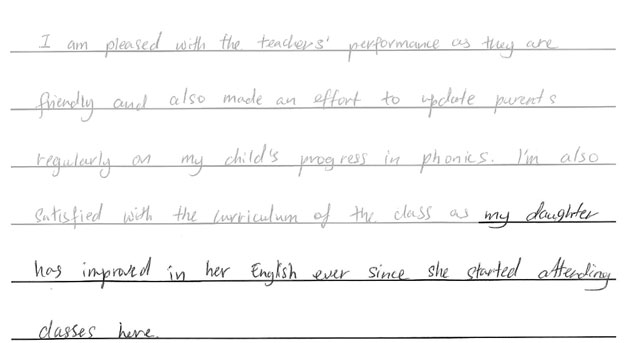 I am pleased with the teachers' performance as they are
friendly and also made an effort to update parents
regularly on my child's progress in phonics. I'm also
satisfied with the curriculum of the class as my daughter
has improved in her English ever since she started attending
classes here.